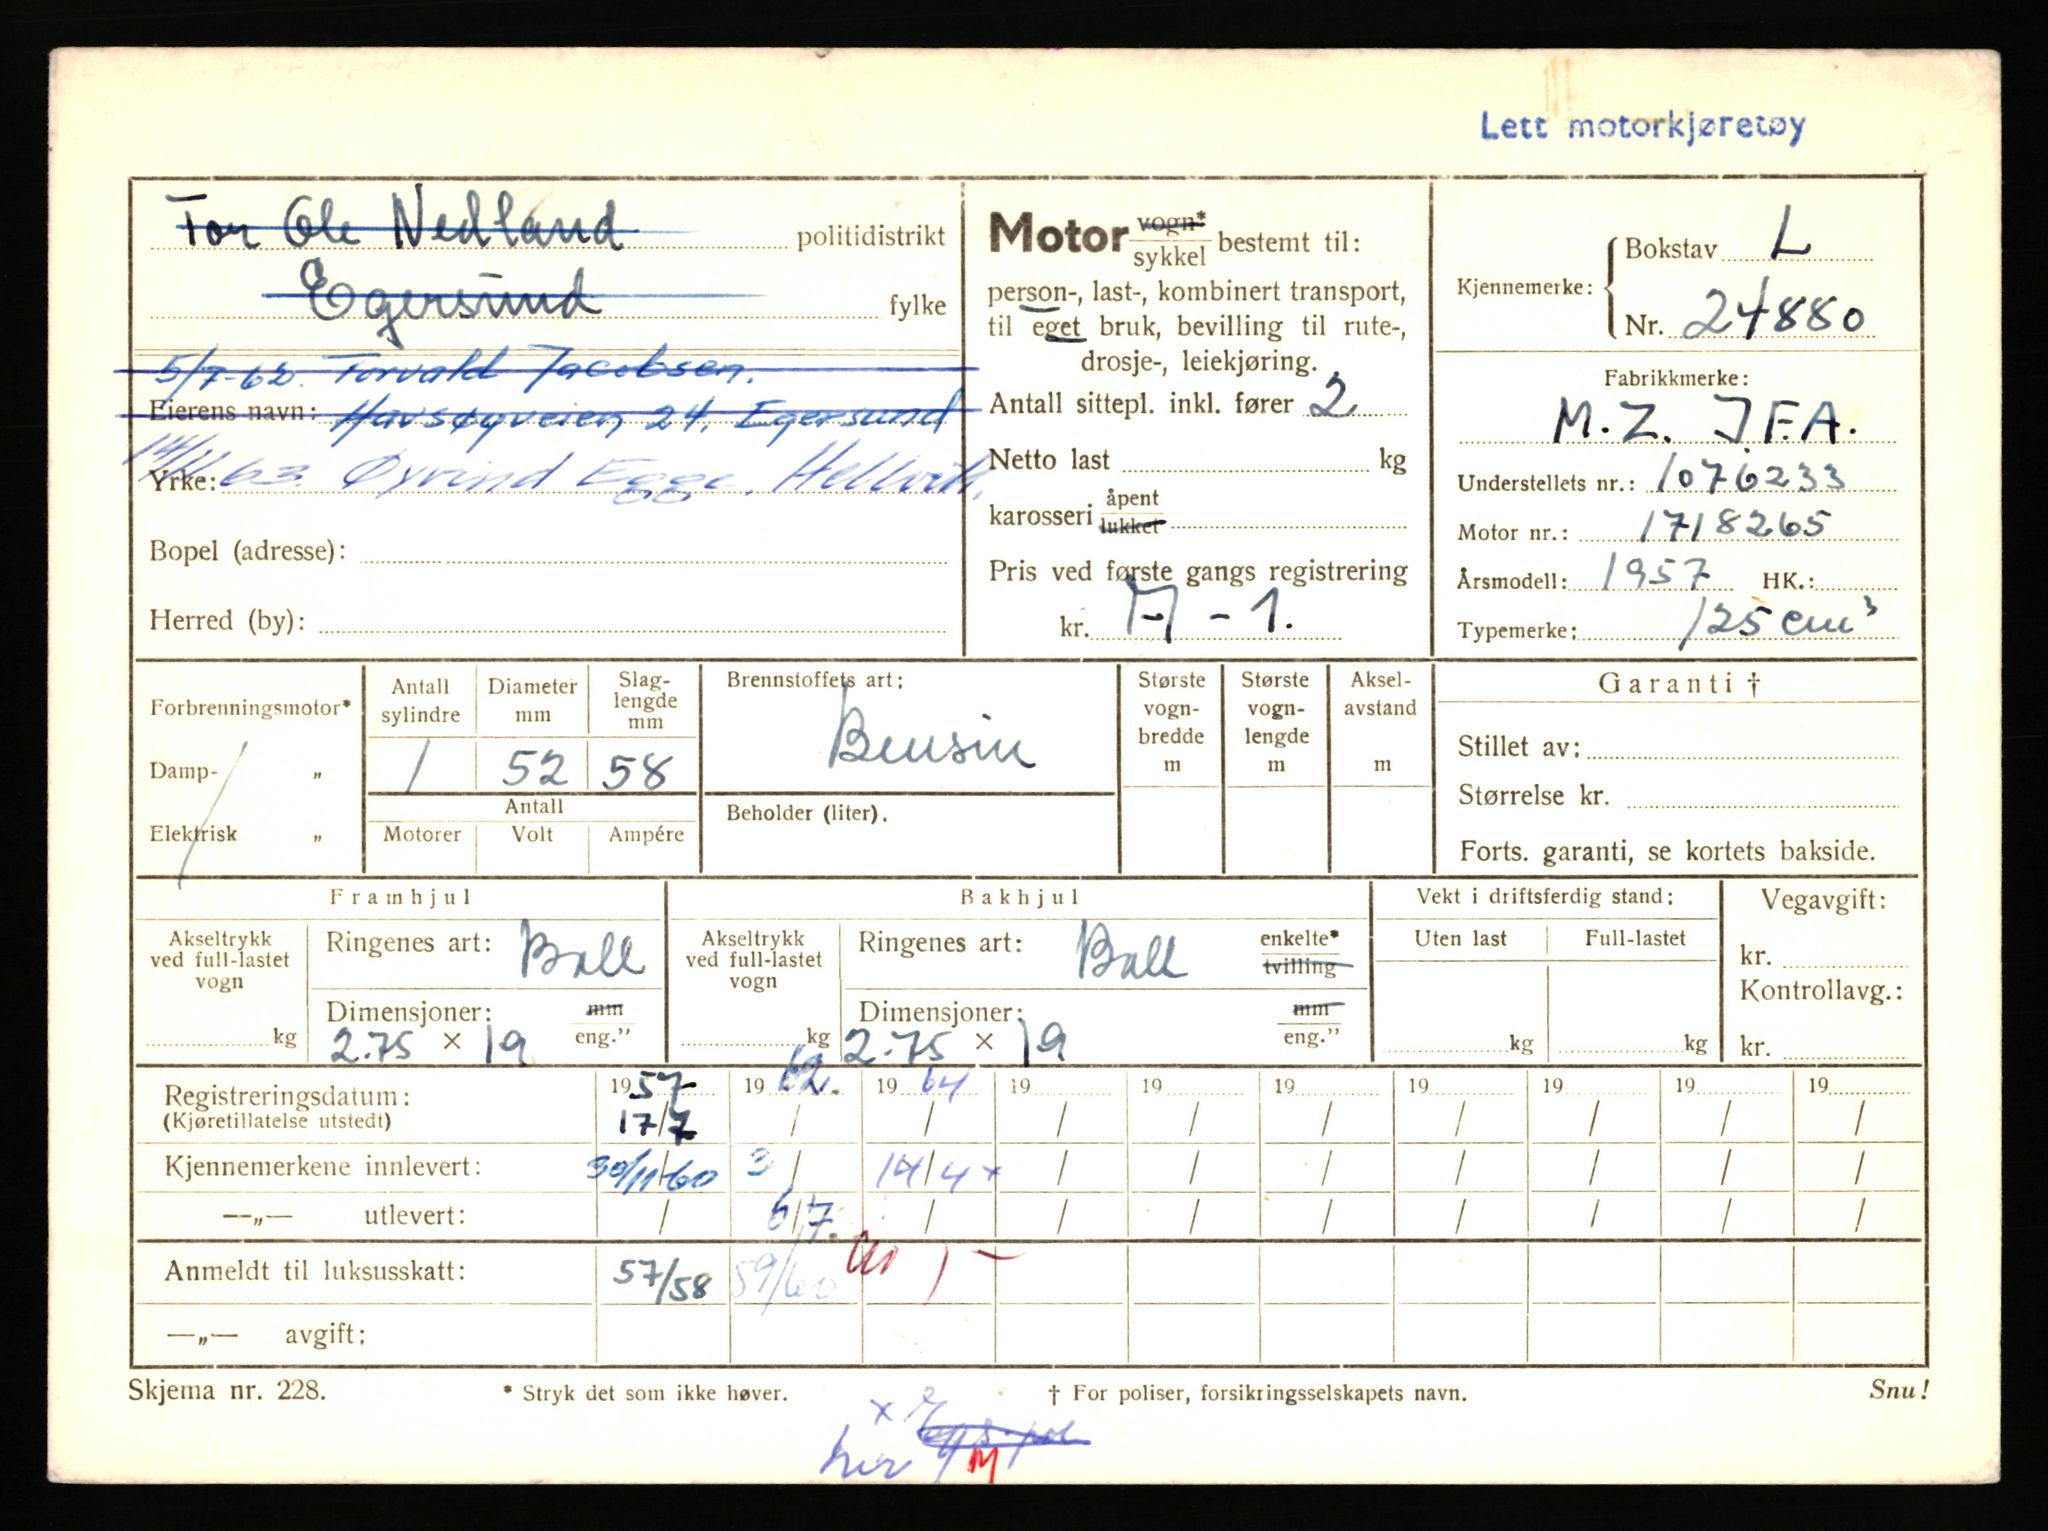 Lett motorkjøretøy
Tor Ole Nedland politidistrikt
Egersund fylke
5/7-62. Torvald Jacobsen.
Eierens navn: Havsøyveien 24, Egersund
14/11 63. Øyvind Egge, Hellvik.
Yrke:
Bopel (adresse):
Herred (by):
Motor vogn* sykkel bestemt til:
person-, last-, kombinert transport,
til eget bruk, bevilling til rute-,
drosje-, leiekjøring.
Antall sittepl. inkl. fører 2
Netto last kg
karosseri åpent lukket
Pris ved første gangs registrering
kr. M - 1.
Kjennemerke: Bokstav L
Nr. 24880
Fabrikkmerke:
M.Z. J.F.A.
Understellets nr.: 1076233
Motor nr.: 1718265
Årsmodell: 1957 HK.:
Typemerke: 125 cm³
Forbrenningsmotor*
Damp- „
Elektrisk „
Antall sylindre Diameter mm Slaglengde mm
1 52 58
Antall
Motorer Volt Ampére
Brennstoffets art:
Bensin
Beholder (liter).
Største vogn-bredde m
Største vogn-lengde m
Aksel-avstand m
Garanti †
Stillet av:
Størrelse kr.
Forts. garanti, se kortets bakside.
Framhjul
Akseltrykk ved full-lastet vogn kg
Ringenes art: Ball
Dimensjoner: mm eng.”
2.75 × 19
Bakhjul
Akseltrykk ved full-lastet vogn kg
Ringenes art: Ball enkelte* tvilling
Dimensjoner: mm eng.”
2.75 × 19
Vekt i driftsferdig stand:
Uten last Full-lastet
kg kg
Vegavgift:
kr.
Kontrollavg.:
kr.
Registreringsdatum: 1957 1962. 1964 19 19 19 19 19 19 19
(Kjøretillatelse utstedt) 17/7 / / / / / / / / /
Kjennemerkene innlevert: 30/11-60 3/ 14/4 x / / / / / / /
—„— utlevert: / 6/7. / / / / / / / /
Anmeldt til luksusskatt: 57/58 59/60
—„— avgift:
Skjema nr. 228. * Stryk det som ikke høver. † For poliser, forsikringsselskapets navn. Snu!
x
her
M